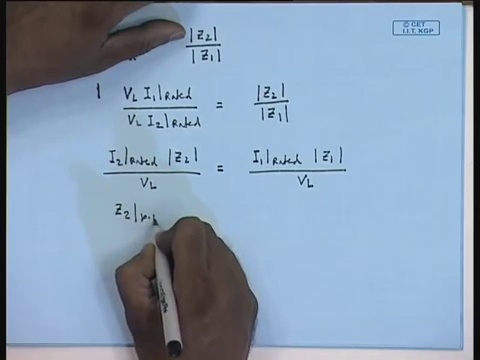 © CET
I.I.T. KGP
|Z₂|
|Z₁|
V_L I₁|Rated
V_L I₂|Rated
=
|Z₂|
|Z₁|
I₂|Rated |Z₂|
V_L
=
I₁|Rated |Z₁|
V_L
Z₂|p.